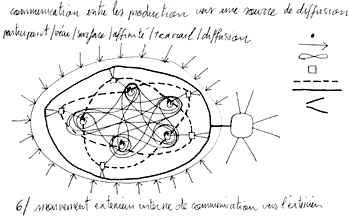 communication entre les production vers une source de diffusion
participant/lieu/surface/affinité/travail/diffusion
6/ mouvement exterieur interne de communication vers l'exterieur